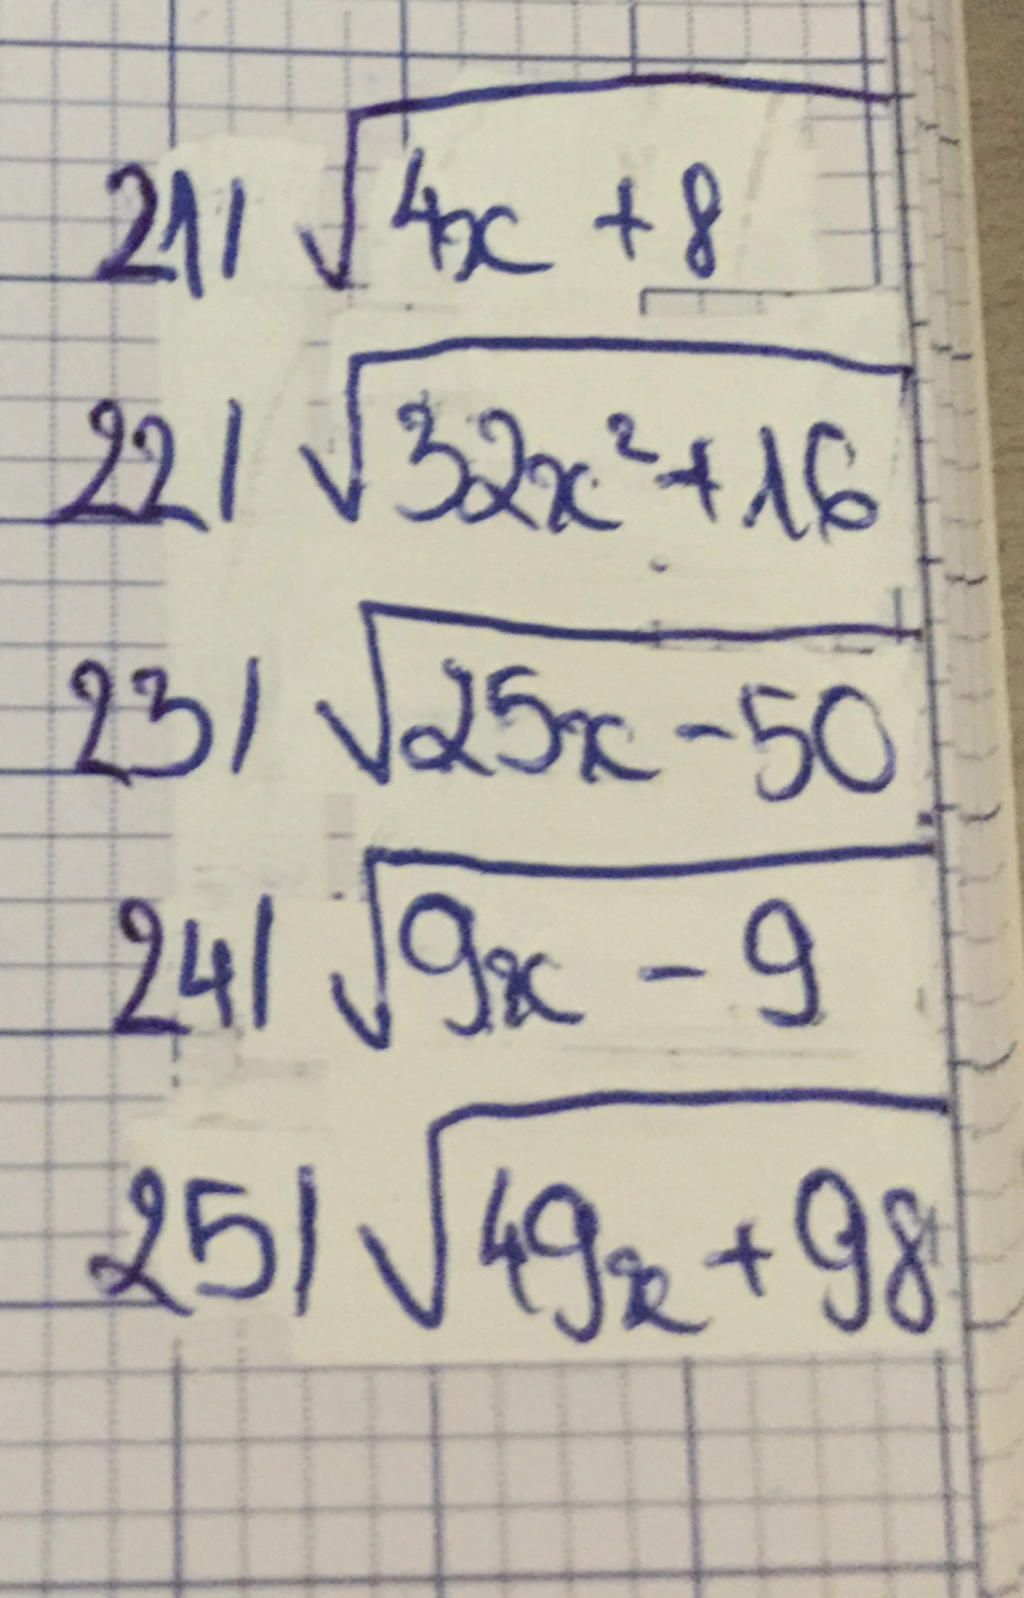 21| √4x + 8
22| √32x² + 16
23| √25x - 50
24| √9x - 9
25| √49x + 98